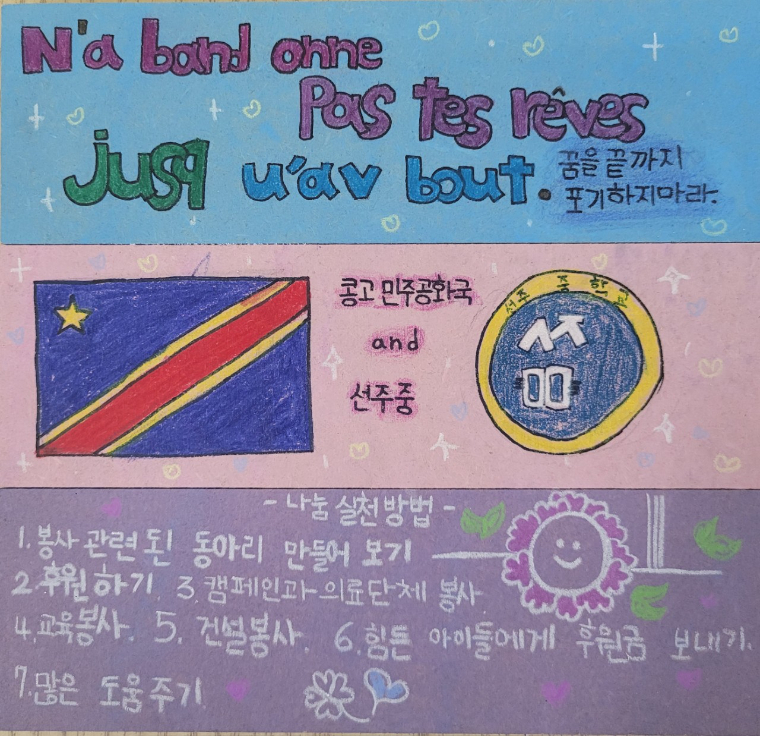 N'a band onne
Pas tes rêves
jusq u'av bout.
꿈을 끝까지
포기하지마라.
콩고 민주공화국
and
선주중
선주중학교
- 나눔 실천방법 -
1. 봉사 관련 된 동아리 만들어 보기
2. 후원하기 3. 캠페인과 의료단체 봉사
4. 교육봉사. 5. 건설봉사. 6. 힘든 아이들에게 후원금 보내기.
7. 많은 도움주기